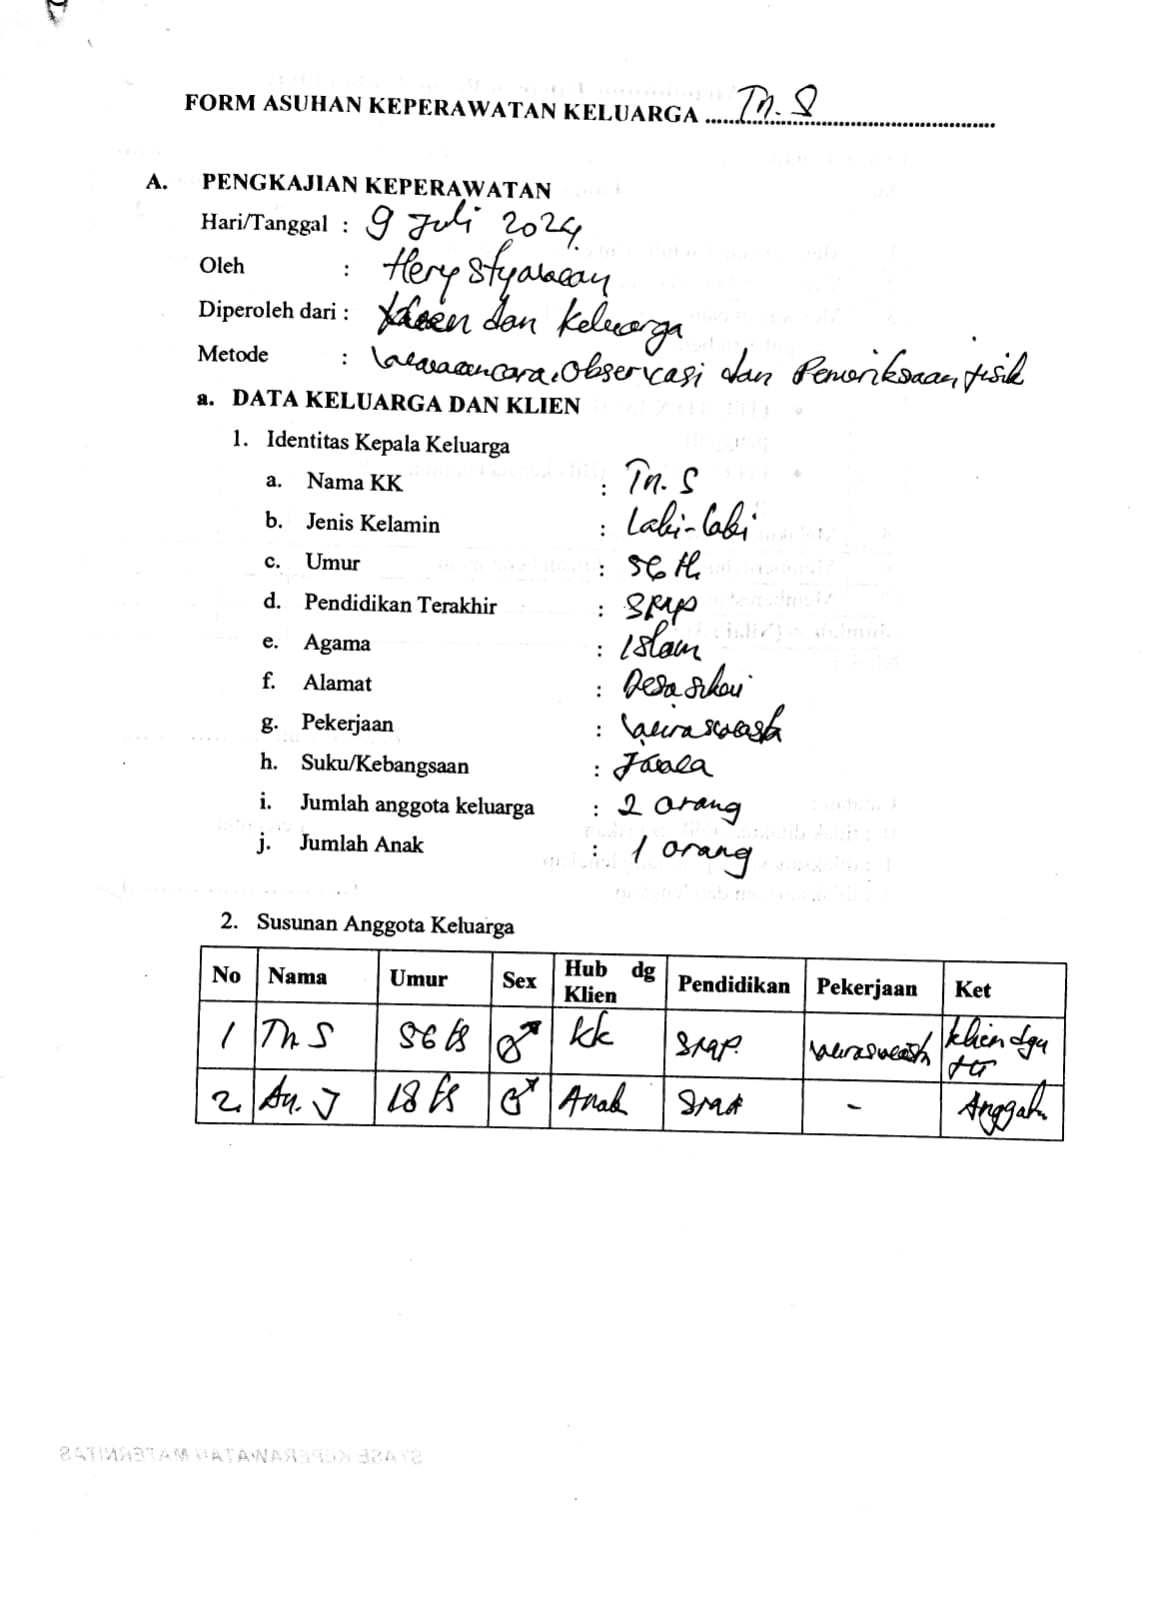 FORM ASUHAN KEPERAWATAN KELUARGA ..... Tn. S
A. PENGKAJIAN KEPERAWATAN
Hari/Tanggal : 9 Juli 2024
Oleh : Hery Styawan
Diperoleh dari : Klien dan Keluarga
Metode : Wawancara, Observasi dan Pemeriksaan fisik
a. DATA KELUARGA DAN KLIEN
1. Identitas Kepala Keluarga
a. Nama KK : Tn. S
b. Jenis Kelamin : Laki-laki
c. Umur : 56 th
d. Pendidikan Terakhir : SMP
e. Agama : Islam
f. Alamat : Desa
g. Pekerjaan : Wiraswasta
h. Suku/Kebangsaan : Jawa
i. Jumlah anggota keluarga : 2 orang
j. Jumlah Anak : 1 orang
2. Susunan Anggota Keluarga
No Nama Umur Sex Hub dg Klien Pendidikan Pekerjaan Ket
1 Tn S 56 th ♂ KK SMP. wiraswasta klien dgn
2. An. J 18 th ♂ Anak SMA -
STASE KEPERAWATAN MATERNITAS